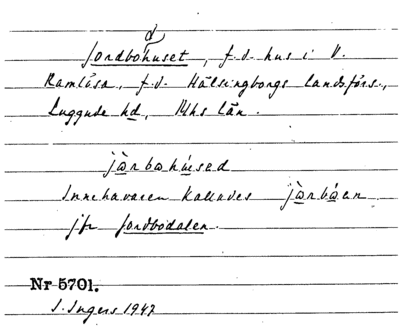 Jordbohuset, f.d. hus i V.
Ramlösa, f.d. Hälsingborgs landsförs.,
Luggude hd, Mhs län.
jàrbahúsed
Innehavaren kallades jàrbáen
jfr Jordbodalen.
Nr 5701.
I. Ingers 1947